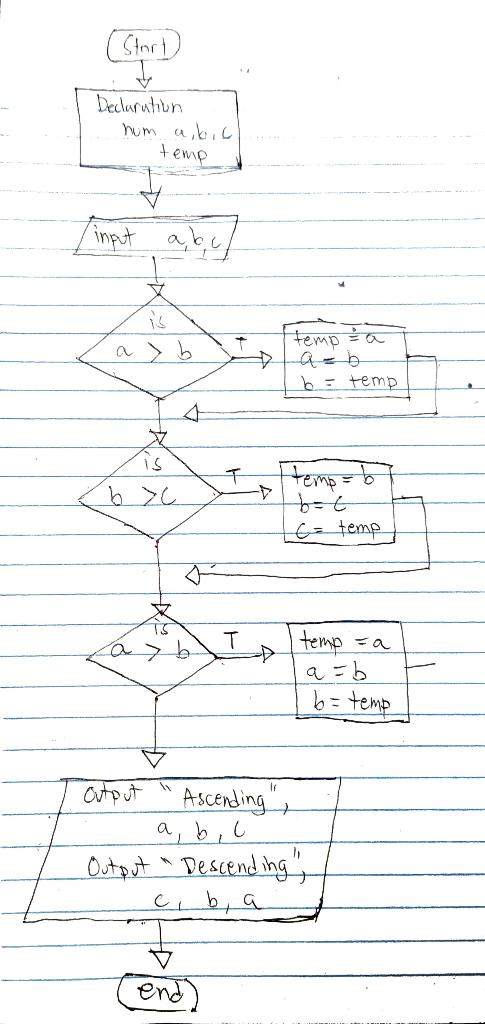 Start
Declaration
num a, b, c
temp
input a, b, c
is
a > b
T
temp = a
a = b
b = temp
is
b > c
T
temp = b
b = c
c = temp
is
a > b
T
temp = a
a = b
b = temp
Output "Ascending",
a, b, c
Output "Descending",
c, b, a
end